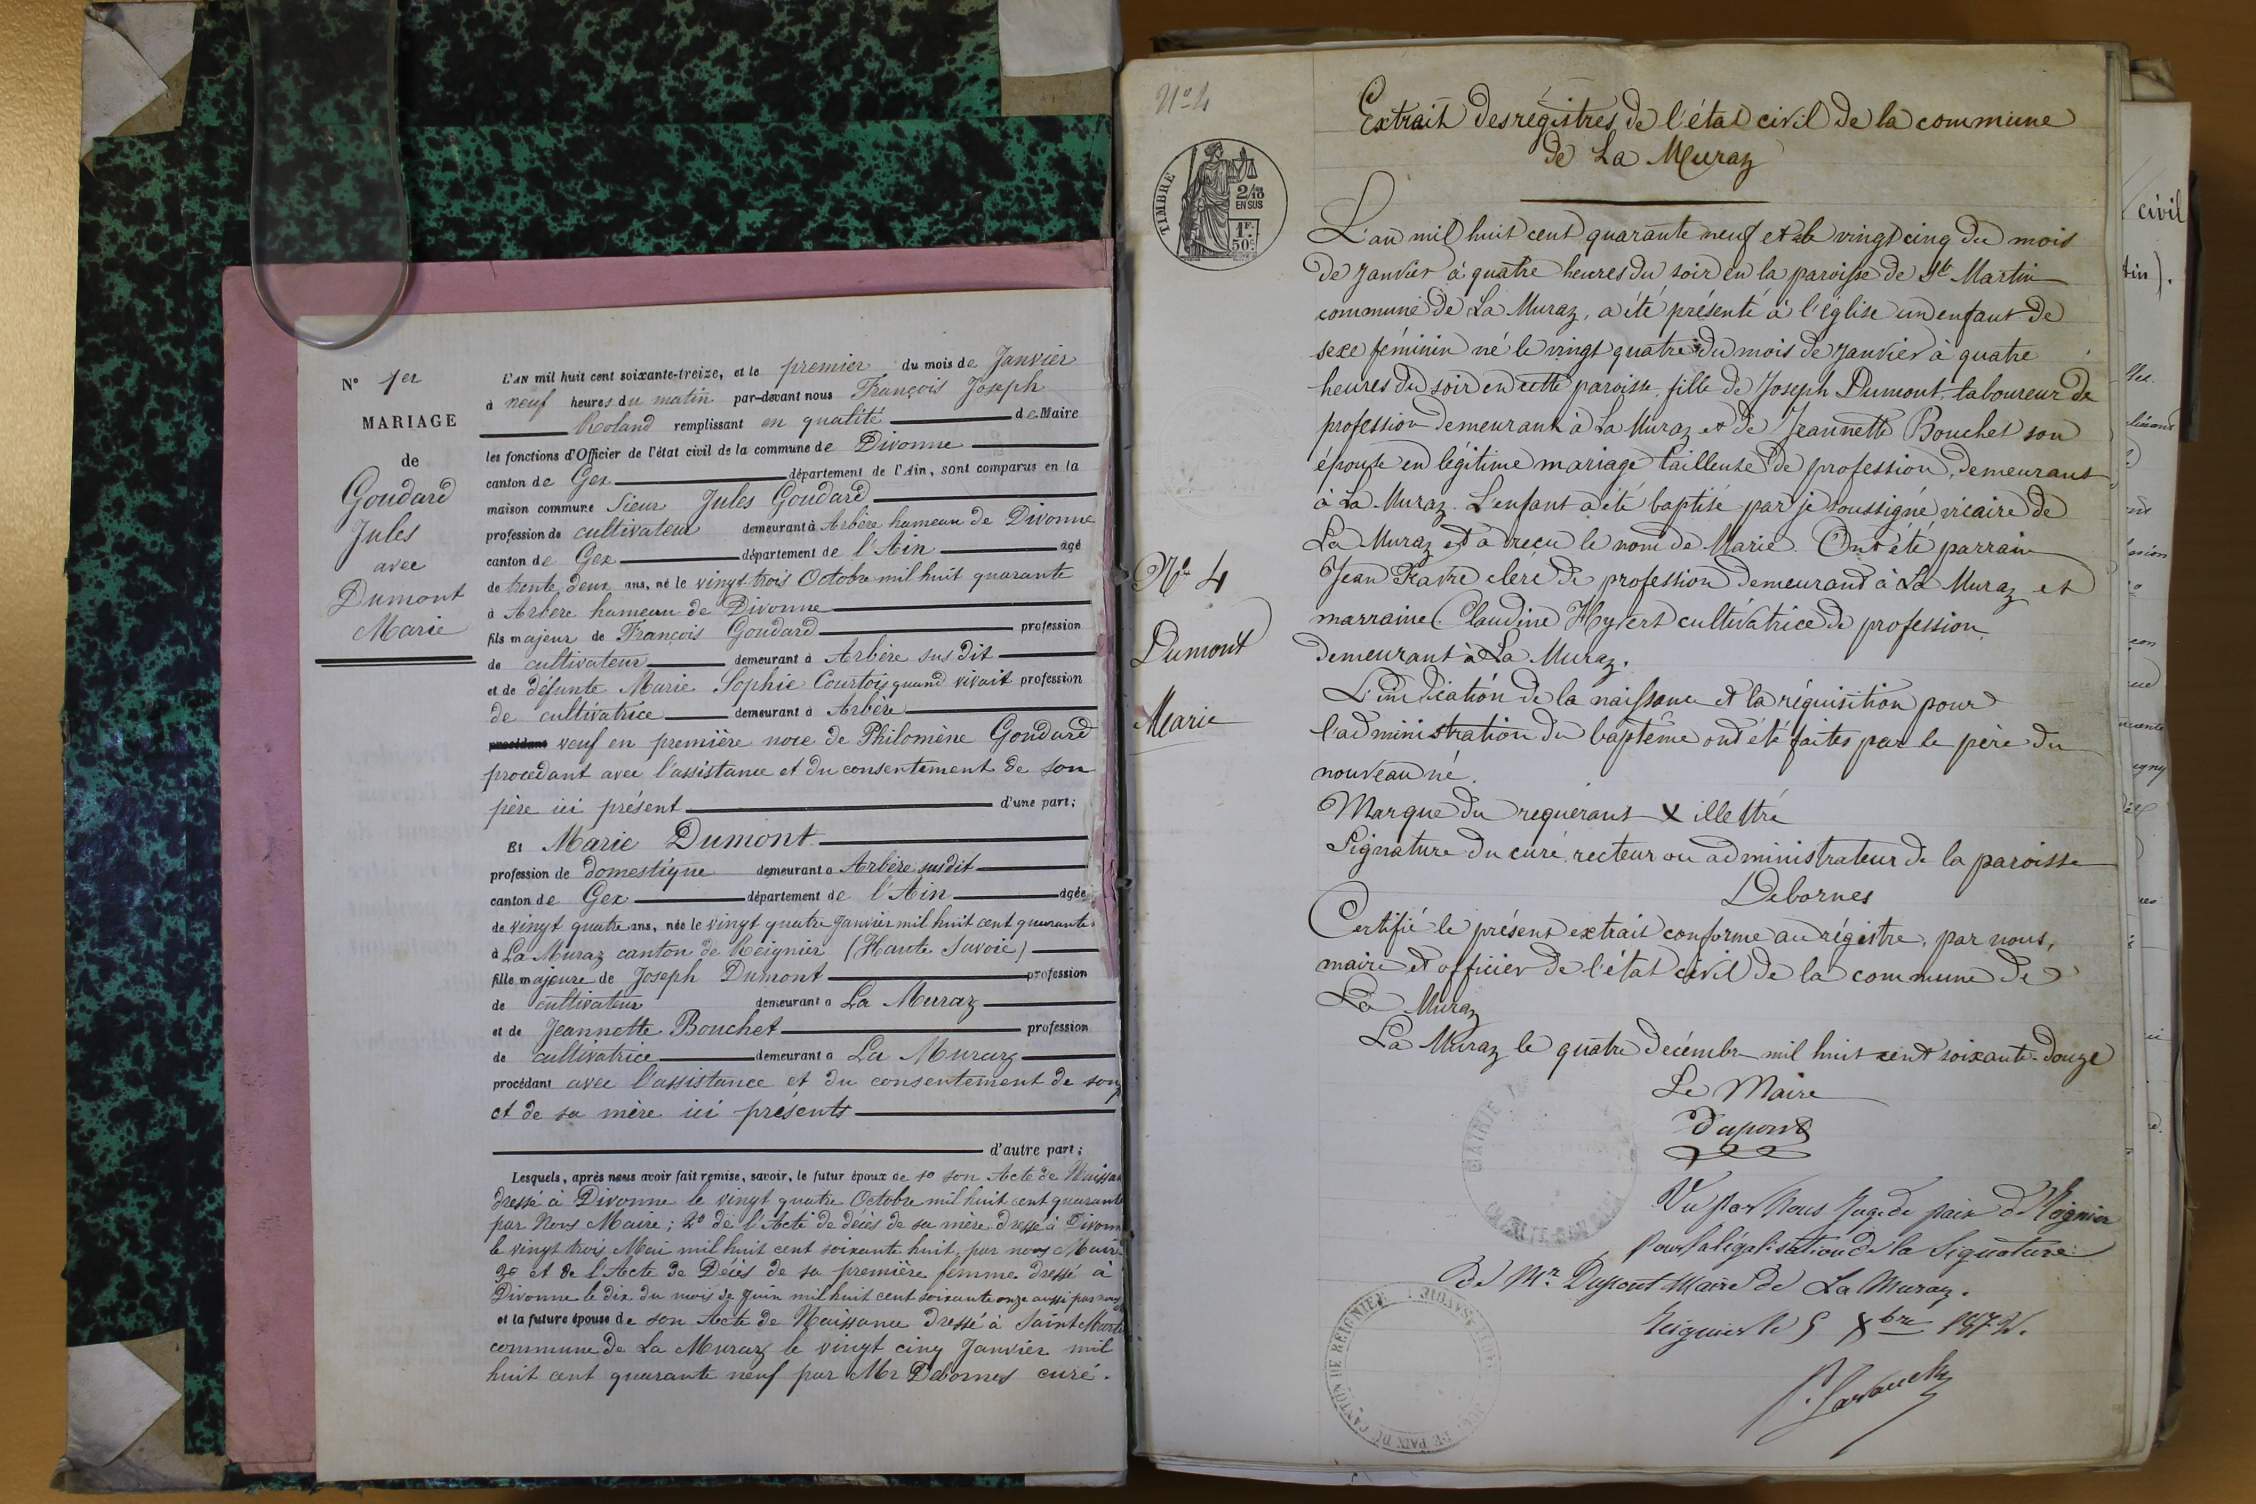 N° 1er
MARIAGE
de
Goudard
Jules
avec
Dumont
Marie
L'AN mil huit cent soixante-treize, et le premier du mois de Janvier
à neuf heures du matin par-devant nous François Joseph
Roland remplissant en qualité de Maire
les fonctions d'Officier de l'état civil de la commune de Divonne
canton de Gex département de l'Ain, sont comparus en la
maison commune Sieur Jules Goudard
profession de cultivateur demeurant à Arbère hameau de Divonne
canton de Gex département de l'Ain agé
de trente deux ans, né le vingt trois Octobre mil huit quarante
à Arbère hameau de Divonne
fils majeur de François Goudard profession
de cultivateur demeurant à Arbère sus dit
et de défunte Marie Sophie Courtois quand vivait profession
de cultivatrice demeurant à Arbère
procédant veuf en première noce de Philomène Goudard
procédant avec l'assistance et du consentement de son
père ici présent d'une part;
Et Marie Dumont
profession de domestique demeurant à Arbère susdit
canton de Gex département de l'Ain agée
de vingt quatre ans, née le vingt quatre Janvier mil huit cent quarante
à La Muraz canton de Reignier (Haute Savoie)
fille majeure de Joseph Dumont profession
de cultivateur demeurant à La Muraz
et de Jeannette Bouchet profession
de cultivatrice demeurant à La Muraz
procédant avec l'assistance et du consentement de son
et de sa mère ici présents
d'autre part;
Lesquels, après nous avoir fait remise, savoir, le futur époux de 1° son Acte de Naissan
dressé à Divonne le vingt quatre Octobre mil huit cent quarante
par Nous Maire; 2° de l'Acte de décès de sa mère dressé à Divonne
le vingt trois Mai mil huit cent soixante huit, par nous Maire
3° et de l'Acte de Décès de sa première femme dressé à
Divonne le dix du mois de Juin mil huit cent soixante onze aussi par nous
et la future épouse de son Acte de Naissance dressé à Saint Martin
commune de La Muraz le vingt cinq Janvier mil
huit cent quarante neuf par Mr Debornes curé.
N° 4
TIMBRE
2/10
EN SUS
1F.
50c
N° 4
Dumont
Marie
Extrait des régistres de l'état civil de la commune
de La Muraz
L'an mil huit cent quarante neuf et le vingt cinq du mois
de Janvier à quatre heures du soir en la paroisse de St Martin
commune de La Muraz, a été présenté à l'église un enfant de
sexe féminin né le vingt quatre du mois de Janvier à quatre
heures du soir en cette paroisse, fille de Joseph Dumont, laboureur de
profession demeurant à La Muraz et de Jeannette Bouchet son
épouse en légitime mariage tailleuse de profession, demeurant
à La Muraz. L'enfant a été baptisé par je soussigné, vicaire de
La Muraz et a reçu le nom de Marie. Ont été parrain
Jean Favre clerc de profession demeurant à La Muraz et
marraine Claudine demeurant cultivatrice de profession
demeurant à La Muraz.
L'indication de la naissance et la réquisition pour
l'administration du baptême ont été faites par le père du
nouveau né.
Marque du requérant X illettré
Signature du curé, recteur ou administrateur de la paroisse
Debornes
Certifié le présent extrait conforme au régistre, par nous,
maire et officier de l'état civil de la commune de
La Muraz
La Muraz le quatre décembre mil huit cent soixante-douze
Le Maire
Dupont
Vu par Nous Juge de paix de Reignier
pour la légalisation de la Signature
de Mr. Dupont Maire de La Muraz.
Reignier le 5 Xbre 1872.
MAIRIE
PAIX DU CANTON DE REIGNIER
civil